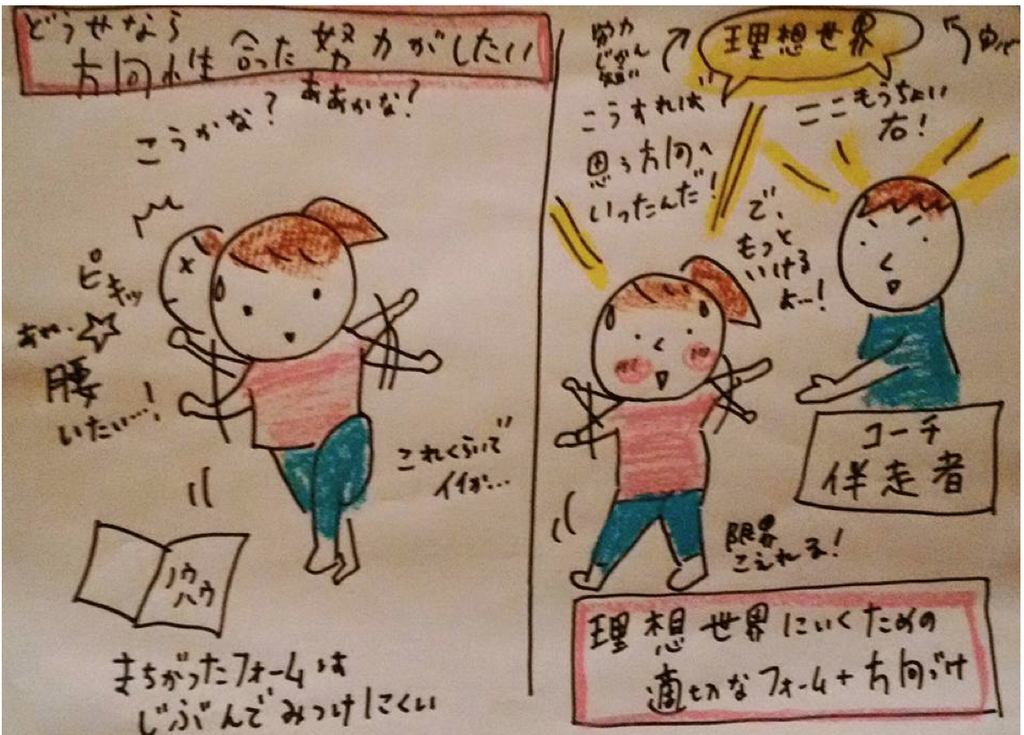 どうせなら
方向性合った努力がしたい
こうかな?
ああかな?
ピキッ
腰
いたい…!
これくらいで
イイか…
ノウ
ハウ
まちがったフォームは
じぶんでみつけにくい
理想世界
努力
じかん
短い
こうすれば
思う方向へ
いったんだ!
ここもうちょい
右!
で、
もっと
いけるよ…!
コーチ
伴走者
限界
こえれる!
理想世界にいくための
適切なフォーム+方向づけ